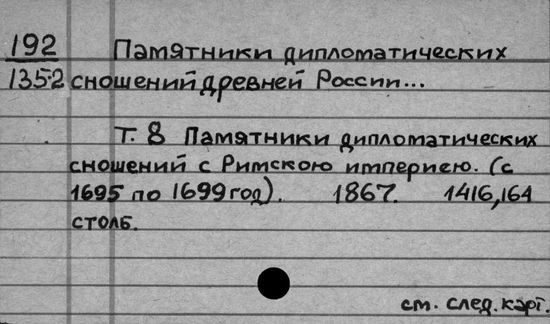 192 Памятники дипломатических
135-2 сношений древней России...
Т. 8 Памятники дипломатических
сношений с Римскою империею. (с
1695 по 1699 год). 1867. 1416,164
столб.
см. след. карт.